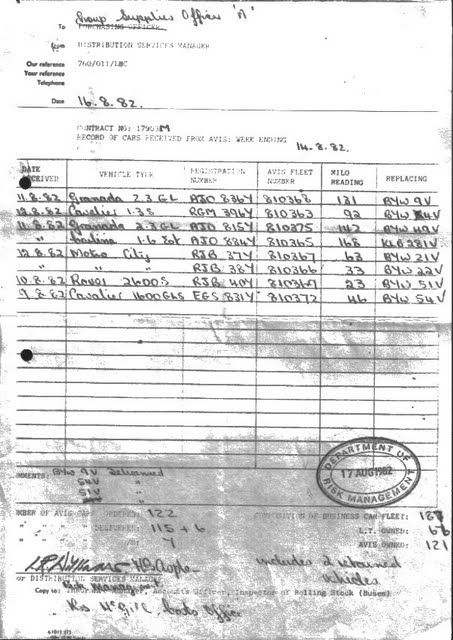 Group Supplies Officer 'A'
To PURCHASING OFFICER
From DISTRIBUTION SERVICES MANAGER
Our reference 760/011/LBC
Your reference
Telephone
Date 16.8.82.
CONTRACT NO: 17903M
RECORD OF CARS RECEIVED FROM AVIS: WEEK ENDING 14.8.82.
DATE RECEIVED VEHICLE TYPE REGISTRATION NUMBER AVIS FLEET NUMBER MILO READING REPLACING
11.8.82 Granada 2.3 GL AJO 836Y 810368 131 BYW 9V
12.8.82 Cavalier 1.3S RGM 396Y 810363 92 BYW 54V
11.8.82 Granada 2.3 GL AJO 815Y 810375 142 BYW 49V
" 1.6 Est AJO 884Y 810365 168 KLB 281V
12.8.82 Metro City RJB 37Y 810367 63 BYW 21V
" " RJB 38Y 810366 33 BYW 22V
10.8.82 Rover 2600S RJB 40Y 810369 23 BYW 51V
9.8.82 Cavalier 1600GLS EGS 831Y 810372 46 BYW 54V
DEPARTMENT OF
17 AUG 1982
RISK MANAGEMENT
COMMENTS: BYW 9V Returned
54V "
51V "
NUMBER OF AVIS CARS ORDERED: 122 COMPOSITION OF BUSINESS CAR FLEET: 187
" " " DELIVERED: 115 + 6 L.T. OWNED: 66
" " " 7 AVIS OWNED: 121
includes 2 returned
vehicles
for DISTRIBUTION SERVICES MANAGER
Risk Management
Copy to: Accounts Officer, Inspector of Rolling Stock (Buses)